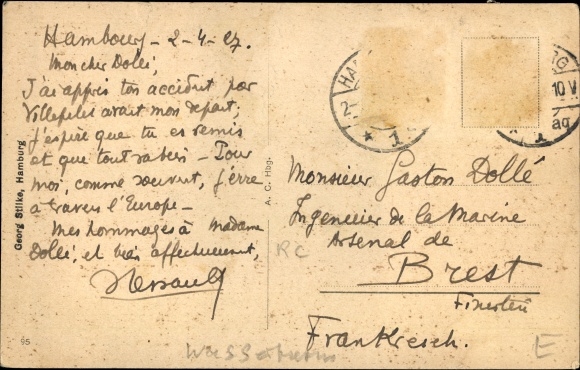 Hambourg - 2-4-27.
Mon cher Dollé,
J'ai appris ton accident par
avant mon départ;
j'espère que tu es remis
et que tout va bien - Pour
moi, comme souvent, j'erre
à travers l'Europe -
Mes hommages à Madame
Dollé, et bien affectueusement,
Georg Stilke, Hamburg
A. C. Hbg.
95
HA
10 V
1
Monsieur Gaston Dollé
Ingénieur de la Marine
Arsenal de
Brest
Finistère
Frankreich.
RC
E